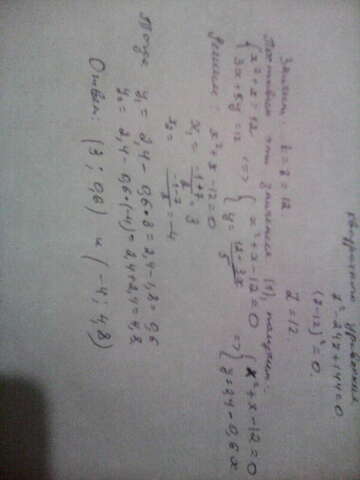 квадратное уравнение
z² - 24z + 144 = 0
(z-12)² = 0.
z = 12.
Значит, t = z = 12
Подставим эти значения (1), получаем:
{ x² + x = 12 <=> { x² + x - 12 = 0 <=> { x² + x - 12 = 0
{ 3x + 5y = 12 { y = (12 - 3x)/5 { y = 2,4 - 0,6x
решим: x² + x - 12 = 0
x₁ = (-1+7)/2 = 3
x₂ = (-1-7)/2 = -4
Тогда y₁ = 2,4 - 0,6 · 3 = 2,4 - 1,8 = 0,6
y₂ = 2,4 - 0,6 · (-4) = 2,4 + 2,4 = 4,8
Ответ: (3; 0,6) и (-4; 4,8)